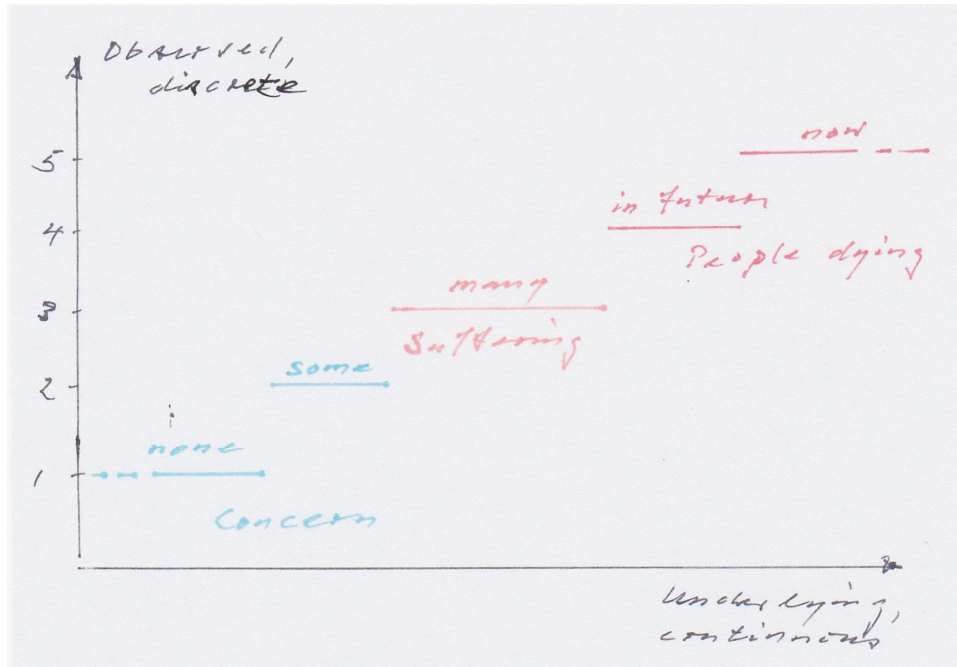 Observed,
discrete
now
5
in future
4
People dying
many
3
Suffering
some
2
none
1
Concern
Underlying,
continuous